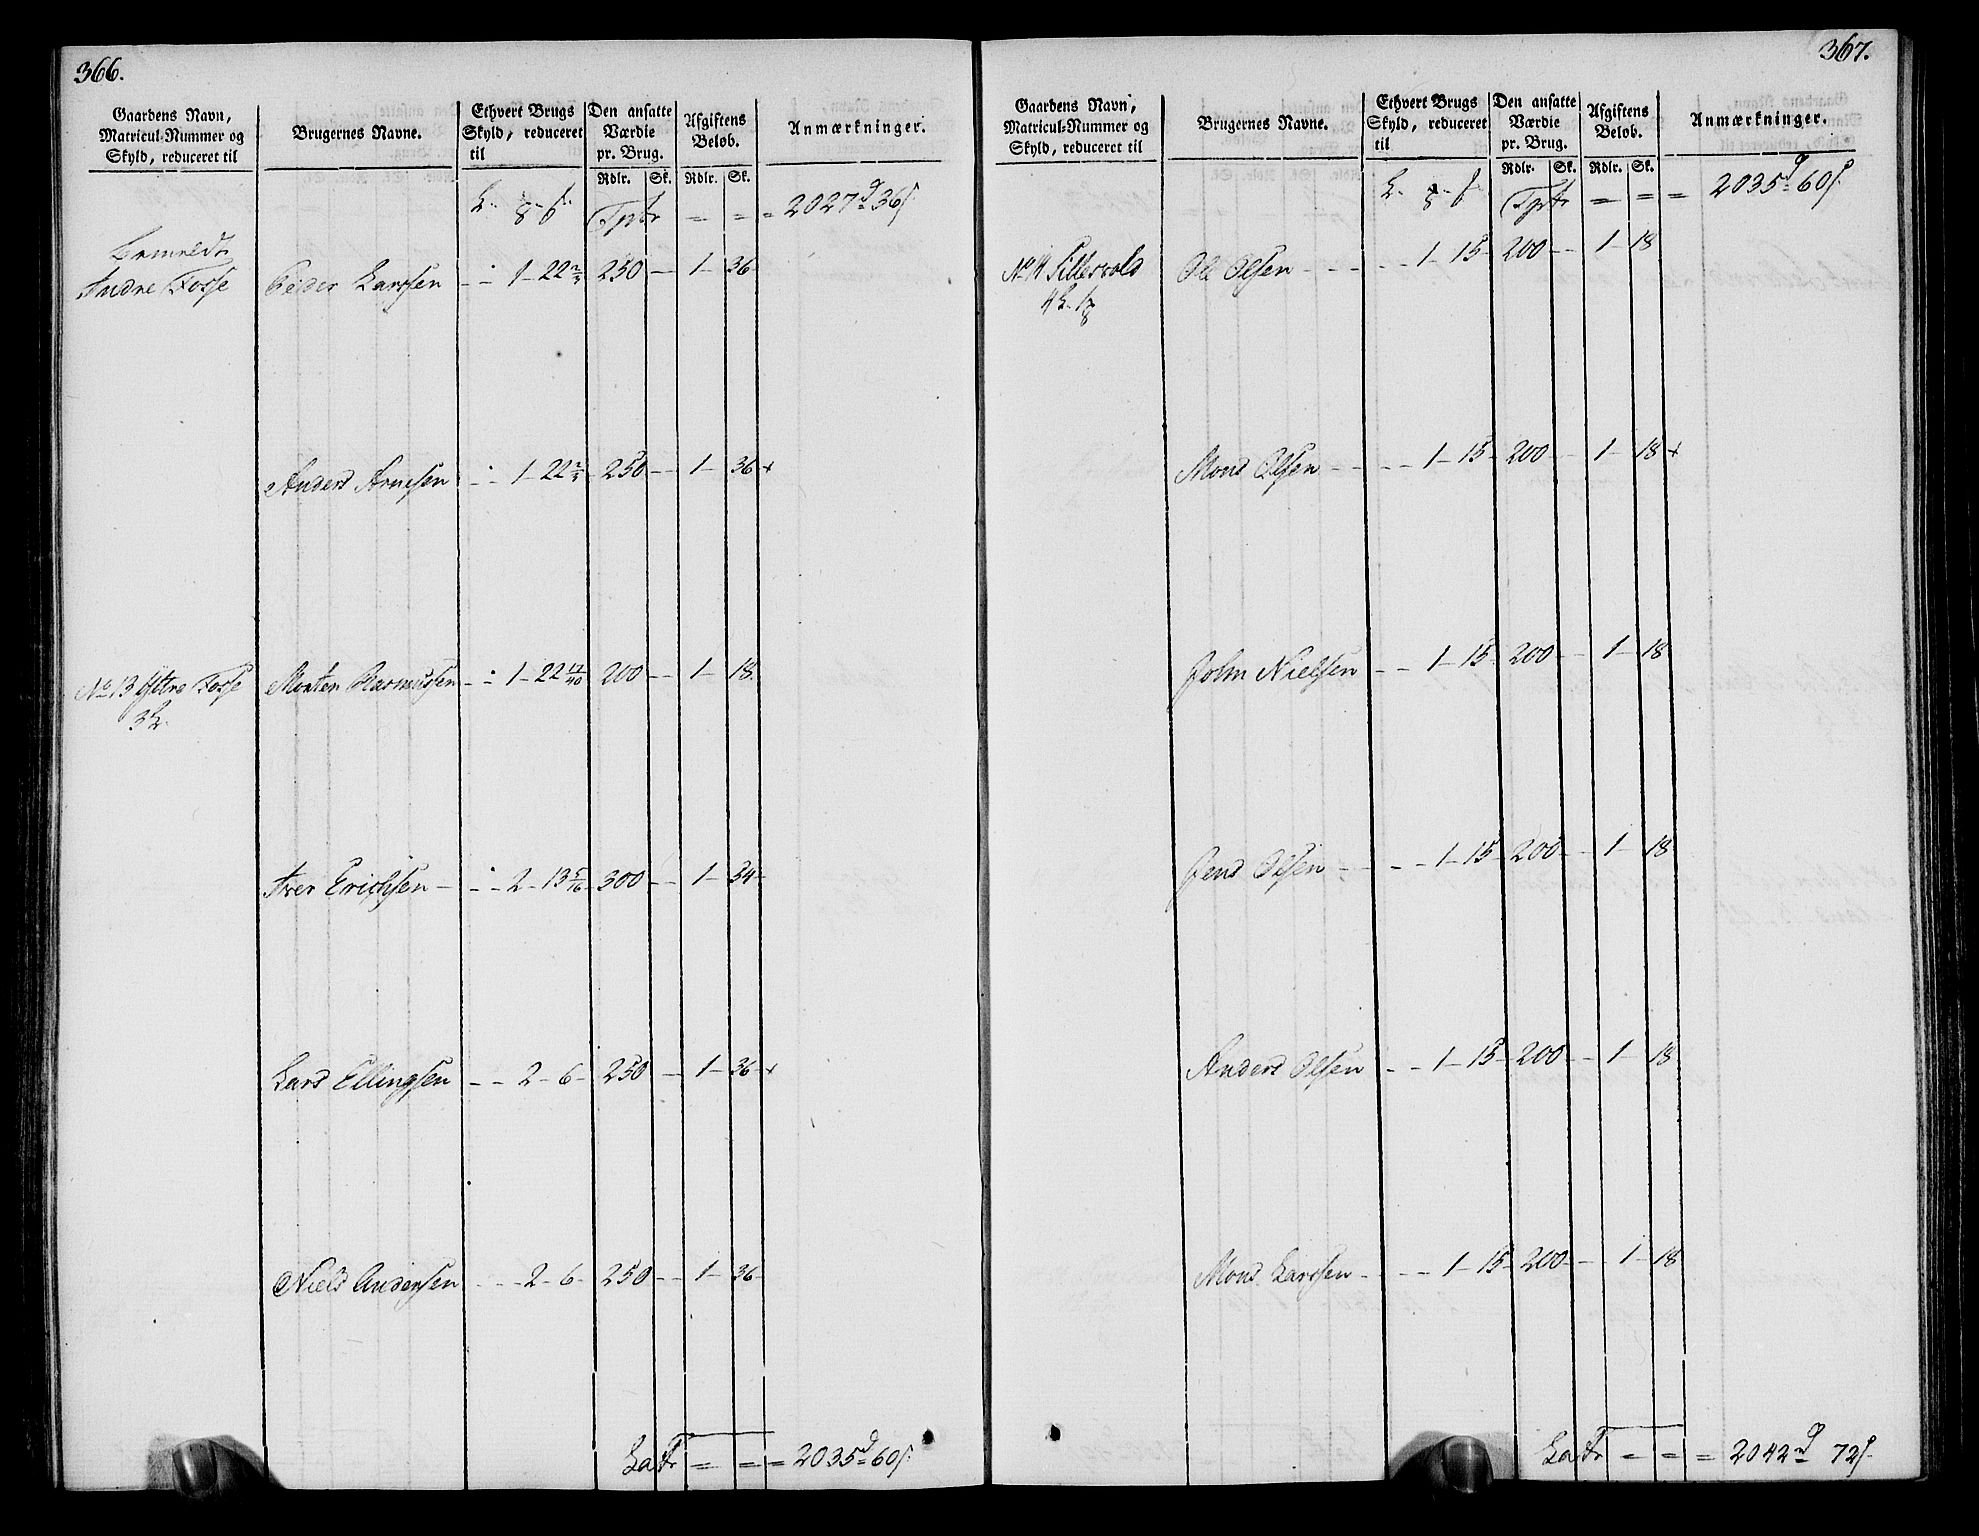 366.
Gaardens Navn,
Matricul-Nummer og
Skyld, reduceret til
Brugernes Navne.
Ethvert Brugs
Skyld, reduceret
til
Den ansatte
Værdie
pr. Brug.
Rdlr. Sk.
Afgiftens
Beløb.
Rdlr. Sk.
Anmærkninger.
Tprtr = = = 2027 36
Indre Fosse Peder Larssen - - 1 - 22 2/3 250 - 1 - 36
Anders Arnesen - - 1 - 22 2/3 250 - 1 - 36 +
No 13 Yttre Fosse Morten Rasmussen - - 1 - 22 17/40 200 - 1 - 18
Iver Erichsen - - 2 - 13 5/16 300 - 1 - 54
Lars Ellingsen - - 2 - 6 - 250 - 1 - 36 +
Niels Andersen - - 2 - 6 - 250 - 1 - 36
Latr = = = 2035 60
367.
Gaardens Navn,
Matricul-Nummer og
Skyld, reduceret til
Brugernes Navne.
Ethvert Brugs
Skyld, reduceret
til
Den ansatte
Værdie
pr. Brug.
Rdlr. Sk.
Afgiftens
Beløb.
Rdlr. Sk.
Anmærkninger.
Tprtr = = = 2035 60
No 14 Ole Olsen - - 1 - 15 - 200 - 1 - 18
Mons Olsen - - 1 - 15 - 200 - 1 - 18 +
John Nielsen - - 1 - 15 - 200 - 1 - 18
Jens Olsen - - 1 - 15 - 200 - 1 - 18
Anders Olsen - - 1 - 15 - 200 - 1 - 18
Mons Larssen - - 1 - 15 - 200 - 1 - 18
Latr = = = 2042 72